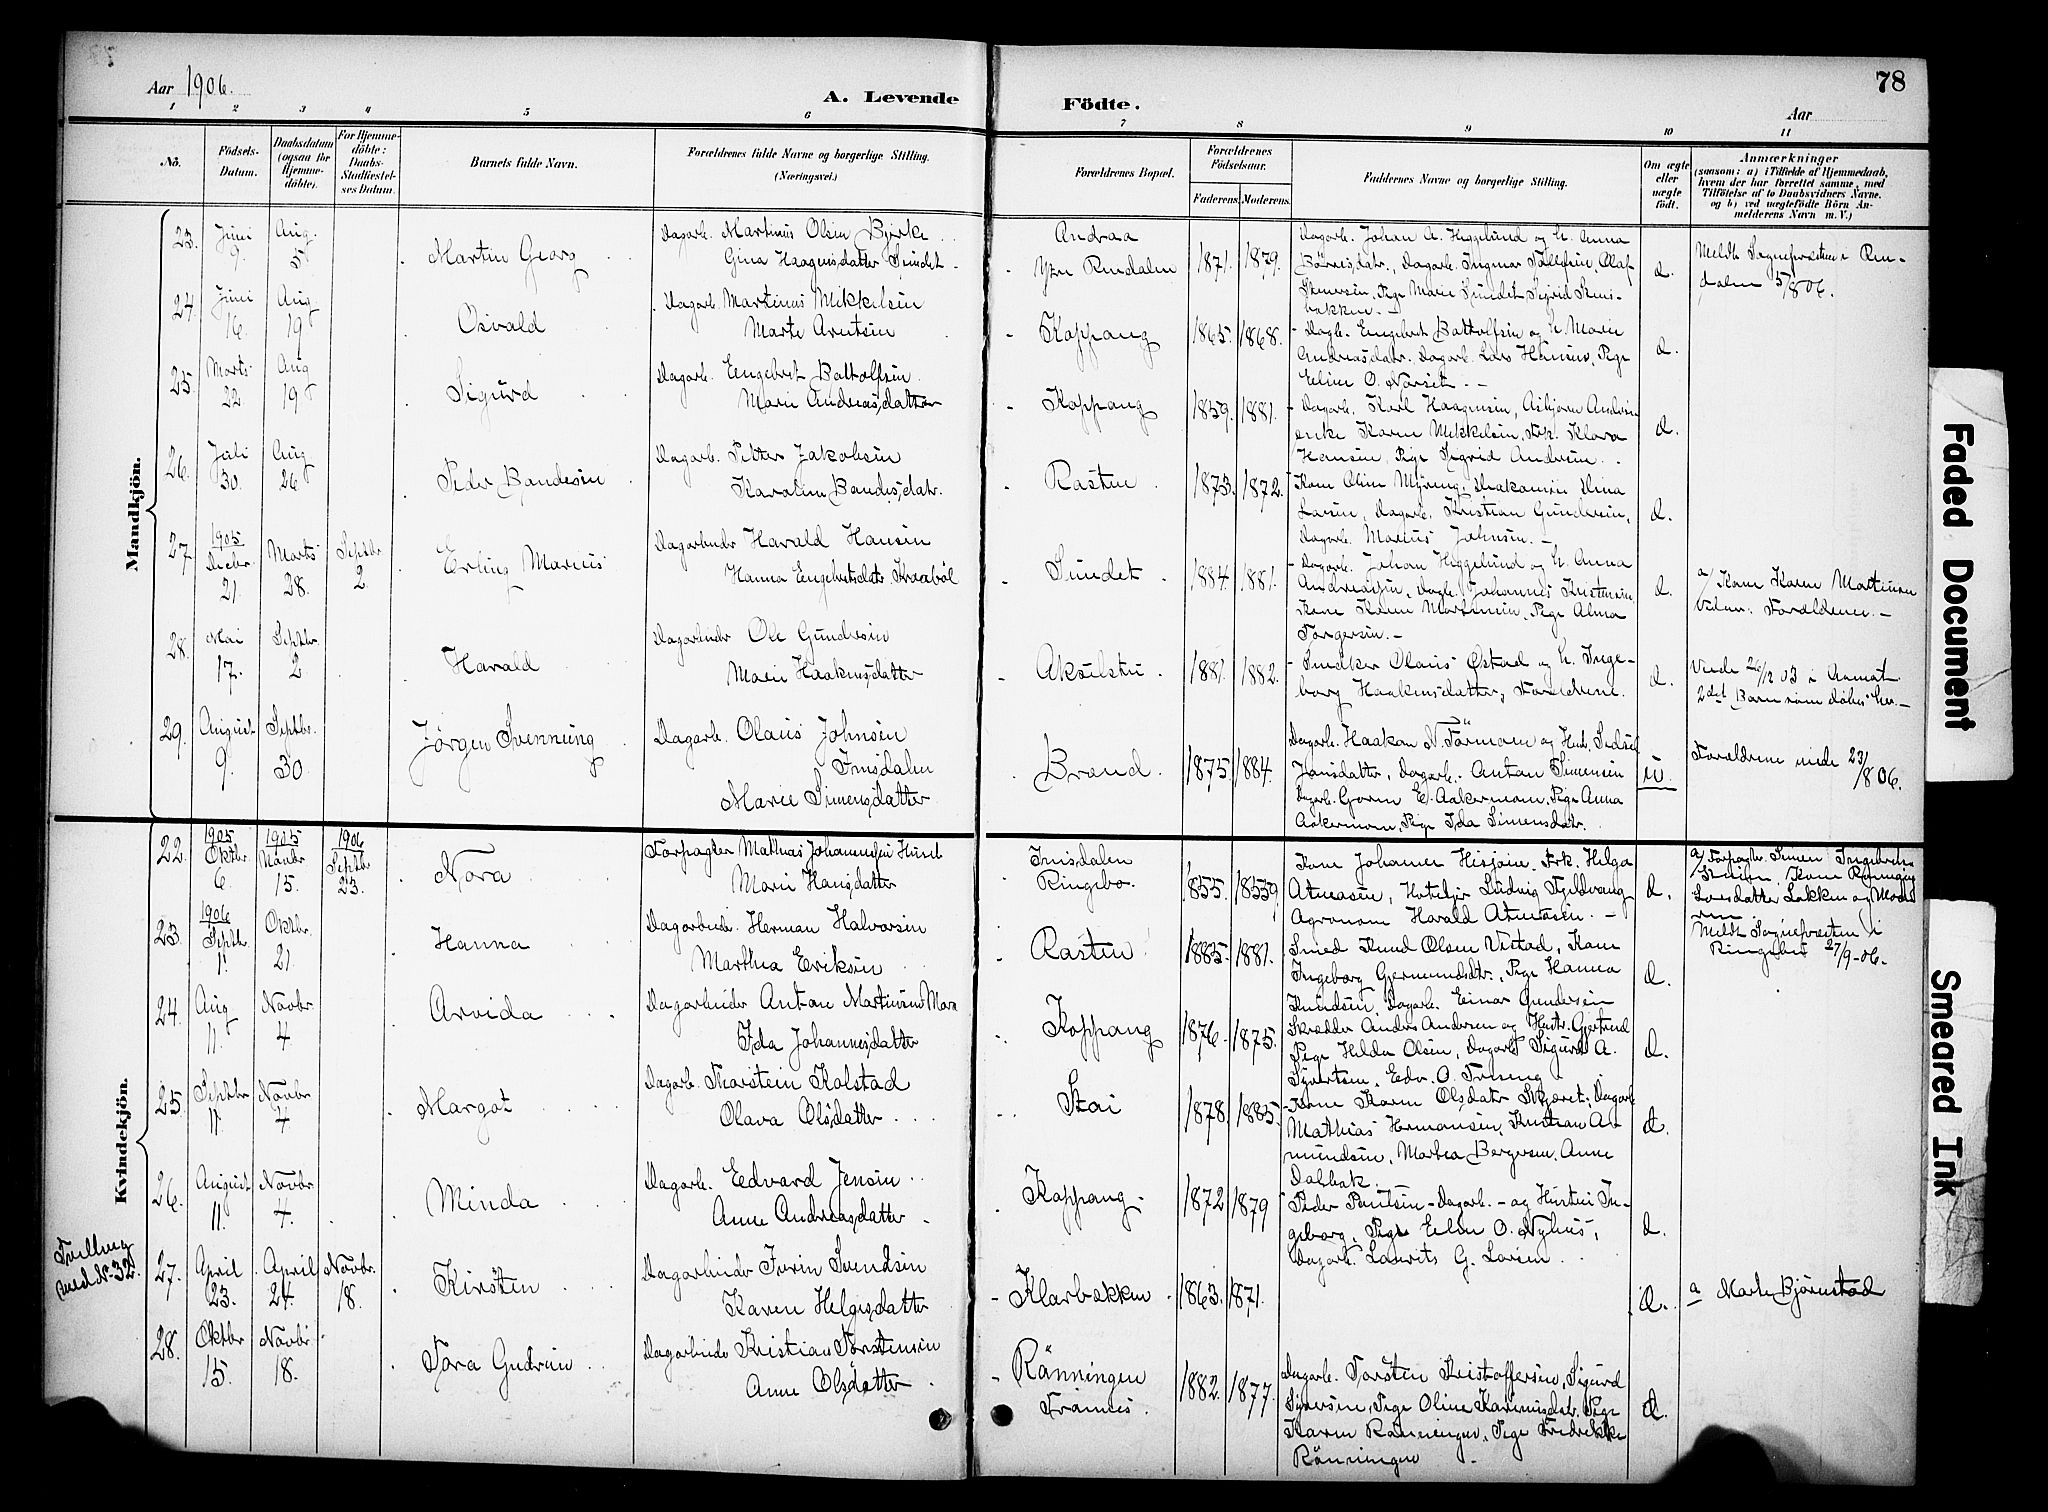 78
Aar 1906.
A. Levende Födte.
Aar
1 2 3 4 5 6 7 8 9 10 11
No.
Födsels-
Datum.
Daabsdatum
(ogsaa for
Hjemme-
döbte).
For Hjemme-
döbte:
Daabs-
Stadfæstel-
ses Datum.
Barnets fulde Navn.
Forældrenes fulde Navne og borgerlige Stilling.
(Næringsvei.)
Forældrenes Bopæl.
Forældrenes
Födselsaar.
Faderens. Moderens.
Faddernes Navne og borgerlige Stilling.
Om ægte
eller
uægte
födt.
Anmærkninger
(saasom: a) i Tilfælde af Hjemmedaab,
hvem der har forrettet samme, med
Tilföielse af to Daabsvidners Navne,
og b) ved uægtefödte Börn An-
melderens Navn m. V.)
Mandkjön.
23. Juni 9. Aug. 5 Martin Georg
Dagarb. Martinus Olsen Bjørke
Gina Haagensdatter Sundet
Andraa
Ytre Rendalen 1871. 1879.
Dagarb. Johan A. Heggelund og h. Anna
Børresdatr., Dagarb. Ingmar Tollefsen, Olaf
Stenersen, Pige Marie Sundet Sigrid Stens-
bakken.
Æ.
Meldt Sognepresten i Ren-
dalen 5/8 06.
24. Juni 16 Aug 19 Osvald
Dagarb. Martinus Mikkelsen
Marte Arntsen
Koppang 1865. 1868.
Dagb. Engebret Battolfsen og h. Marie
Andreasdatr. Dagarb. Lars Hansen, Pige
Eline O. Norset.
Æ.
25. Marts 22 Aug 19 Sigurd
Dagarb. Engebret Battolfsen
Marie Andreasdatter
Koppang 1859. 1881.
Dagarb. Karl Haagensen, Asbjørn Andersen
enke Karen Mikkelsen, Frk. Klara
Hansen, Pige Sigrid Andersen.
Æ.
26. Juli 30. Aug. 26 Peder Bendesen
Dagarb. Petter Jakobsen
Karoline Bendesdatr.
Rasten 1873. 1872.
Kone Oline Myreng
Larsen, Dagarb. Kristian Gundersen,
Dagarb. Marius Johnsen.
Æ.
27. 1905 Decbr. 21. Marts 28. Septbr 2. Erling Marius
Dagarbeider Harald Hansen
Hanna Engebretsdatr Kraabøl
Sundet 1884. 1881.
Dagarb. Johan Heggelund og h. Anna
Andreassen, Dagb. Johannes Kristensen
Kone Karen Martinsen, Pige Alma
Torgersen.
Æ.
a/ Kone Karen Martinsen
Vidner: Forældrene.
28. Mai 17. Septbr. 2 Harald
Dagarbeider Ole Gundersen
Marie Haakensdatter
Akselsten 1881. 1882.
Smedker Olaus Østad og h. Inge-
borg Haakensdatter, Forældrene.
Æ.
Viede 26/12 03 i Aamot
2det Barn som døbes her.
29. August 9. Septbr. 30. Jørgen Svenning
Dagarb. Olaus Johnsen
Imsdalen
Marie Simensdatter
Brænd. 1875. 1884.
Dagarb. Haakon N. Tørmoen og Hust. Sidsel
Jonsdatter, Dagarb. Anton Simensen
Dagarb. Gorm E. Aakermoen, Pige Anna
Aakermoen, Pige Ida Simensdatr.
U.
Forældrene viede 23/8 06.
Kvindekjön.
22. 1905 Oktbr. 6. 1905 Novbr 15. 1906 Septbr 23. Nora
Forpagter Mathias Johannesen Hunt
Marie Hansdatter
Imsdalen
Ringebo. 1855. 1859
Kone Johanne Hisjoien, Frk. Helga
Atneosen, Hoteleier Ludvig Fjeldvang
Agronom Harald Atneosen.
Æ.
a/ Forpagter Simen Ingebretsen
Kone Rønnaug
Larsdatter Løkken og Mode-
ren
Meldt Sognepresten i
Ringebu 27/9-06.
23. 1906 Septb. 1. Oktbr. 21. Hanna
Dagarbeid. Herman Halvorsen
Marthea Eriksen
Rasten 1885. 1881.
Smed Knud Olsen Vestad, Kone
Ingeborg Germundsdtr., Pige Hanna
Knudsen, Dagarb. Einar Gundersen
Æ.
24. Aug 11. Novbr. 4 Arvida
Dagarbeider Anton Martinsens Mora
Ida Johannesdatter
Koppang 1876. 1875.
Skrædder Anders Andersen og Hustr. Gjertrud
Pige Hilda Olsen, Dagarb Sigurd A.
Syvertsen, Edv. O. Treseng
Æ.
25. Septbr 11. Novbr. 4 Margot
Dagarb. Thorstein Kolstad
Olava Olsdatter
Stai 1878. 1885.
Kone Karen Olsdatr Skjæret, Dagarb
Mathias Hermansen, Kristian A-
mundsen, Marthea Bergersen, Anne
Dalbak.
Æ.
26. August 11. Novbr 4. Minda
Dagarb. Edvard Jensen
Anne Andreasdatter
Koppang 1872 1879
Peder Paulsen - Dagarb. - og Hustru In-
geborg, Pige Elen O. Nyhus,
Dagarb. Laurits G. Lorsen
Æ.
Tvilling
med No 32.
27. April 23. April 24. Novbr. 18. Kirsten
Dagarbeider Iverin Svendsen
Karen Helgesdatter
Klarbækken 1863. 1871.
Æ.
a Marte Bjørnstad
28. Oktbr 15. Novbr 18. Tora Gudrun
Dagarbeider Kristian Torstensen
Anne Olsdatter
Rønningen
Trønnes. 1882. 1877.
Dagarb. Torsten Kristoffersen, Sigurd
Syversen, Pige Oline Karenusdatr. Pige
Karen Rønningen, Pige Fredrikke
Rønningen
Æ.
Faded Document
Smeared Ink